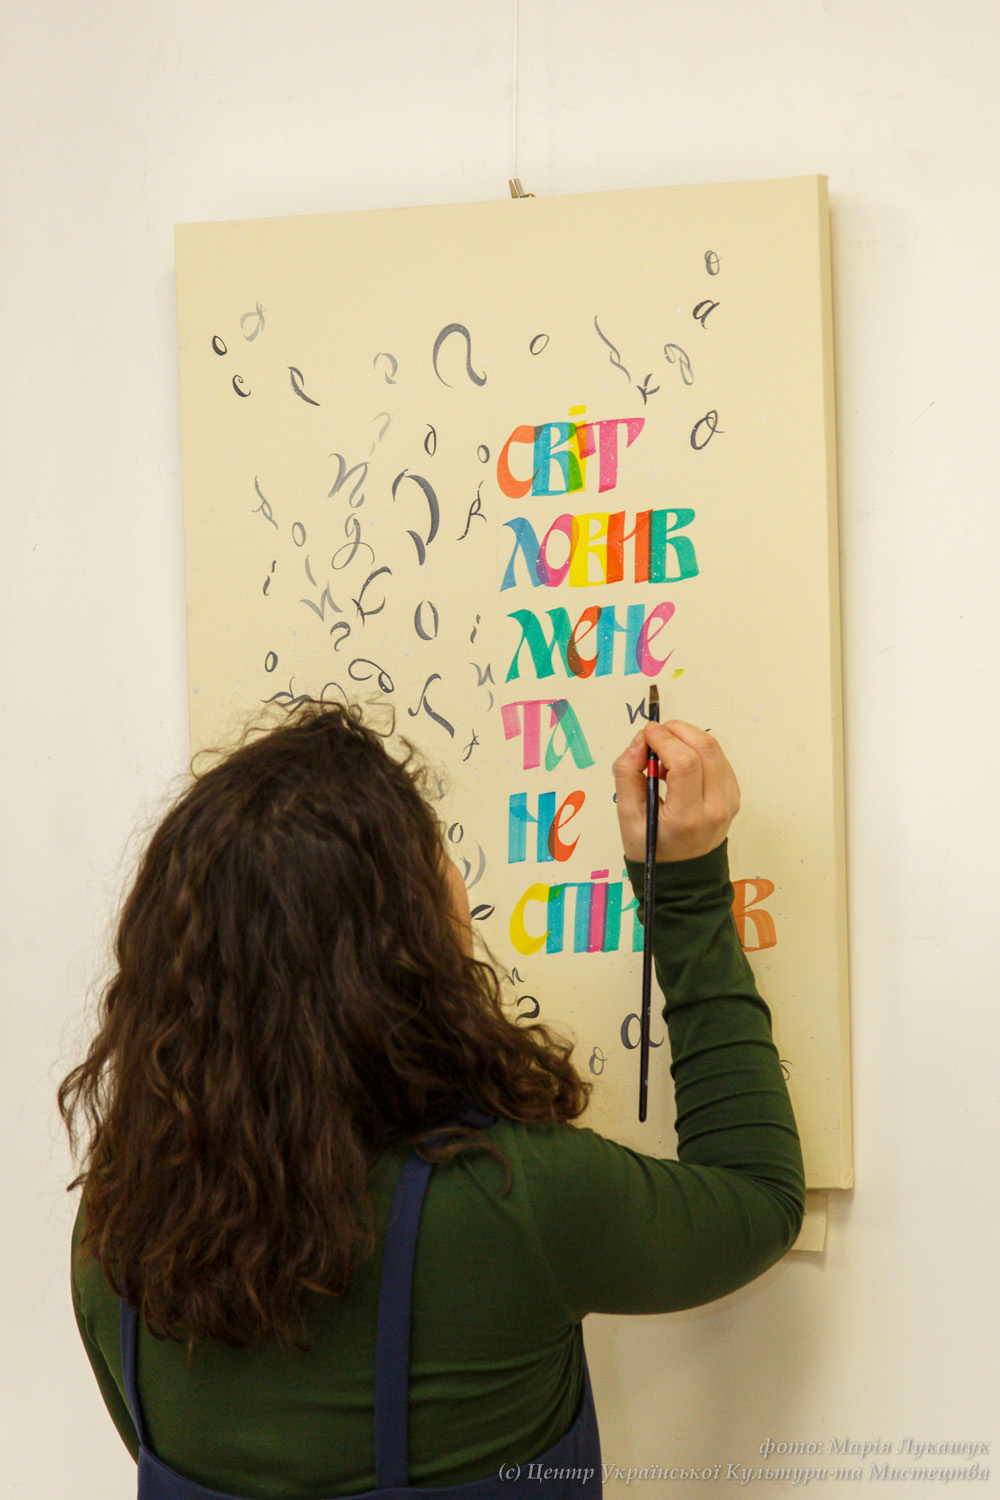 СВІТ
ЛОВИВ
МЕНЕ,
ТА
НЕ
фото: Марія Лукашук
(c) Центр Української Культури та Мистецтва